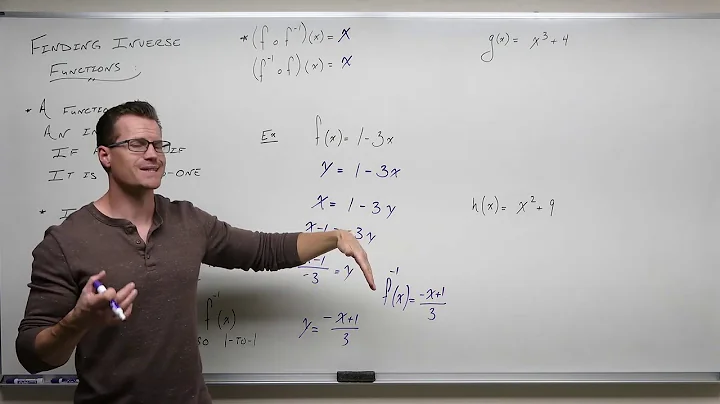 FINDING INVERSE
FUNCTIONS:
* A FUNCTI
AN IN
IF IF
IT IS -ONE
* I
f⁻¹(x)
SO 1-TO-1
* (f ∘ f⁻¹)(x) = x
(f⁻¹ ∘ f)(x) = x
Ex f(x) = 1 - 3x
y = 1 - 3x
x = 1 - 3y
x-1 = -3y
x-1/-3 = y
y = -x+1/3
f⁻¹(x) = -x+1/3
g(x) = x³ + 4
h(x) = x² + 9